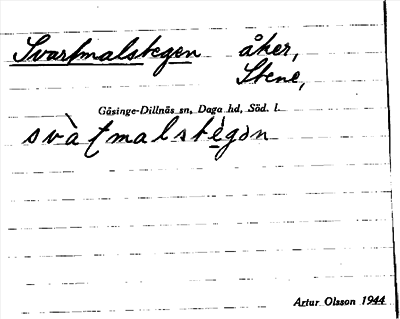 Svartmalstegen åker,
Stene,
Gåsinge-Dillnäs sn, Daga hd, Söd. l.
svàţmalstègən
Artur Olsson 1944